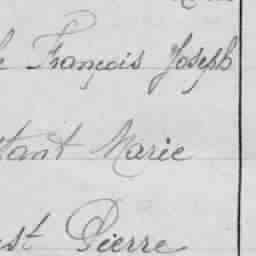 François Joseph
Marie
Pierre